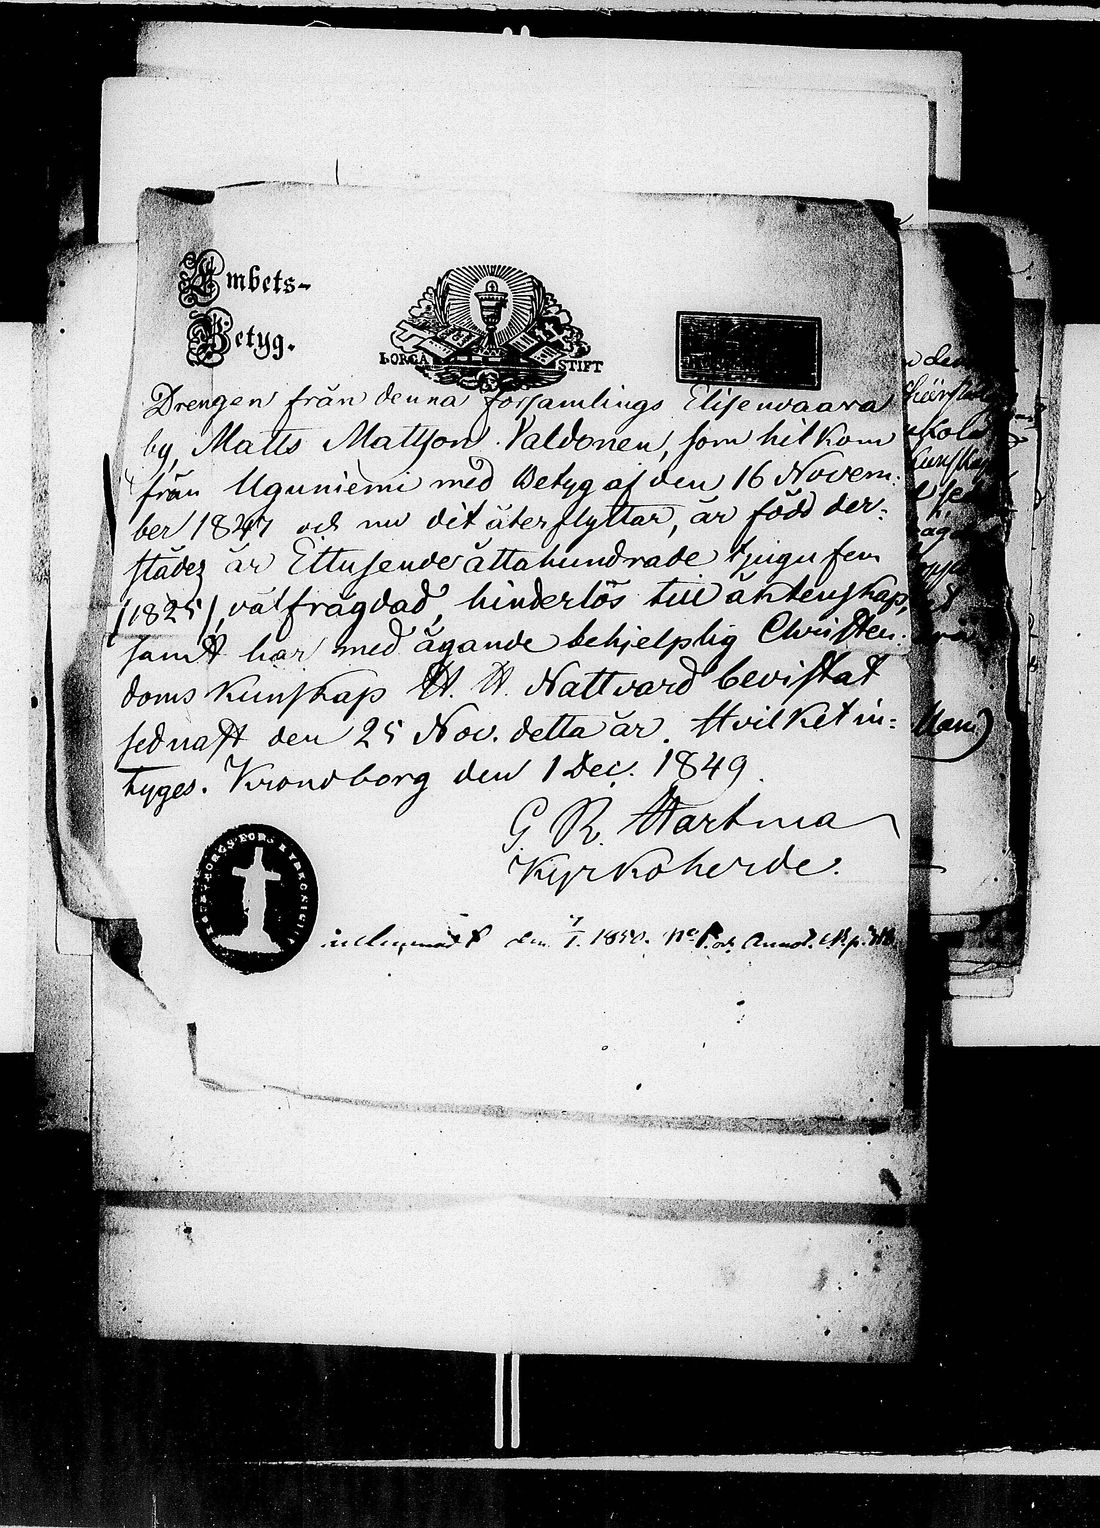 Embets-
Betyg.
BORGÅ STIFT
Drengen från denna församlings Elisenvaara
by, Matts Mattson Valdonen, som hitkom
från Uguniemi med Betyg af den 16 Novem-
ber 1847 och nu dit återflyttar, är född der-
städes år Ettusendeåttahundrade tjugufem
(1825), välfrägdad, hinderlös till äktenskap,
samt har med ägande behjelplig Christen-
doms kunskap H. H. Nattvard bevistat
sednast den 25 Nov. detta år. Hvilket in-
tyges. Kronoborg den 1 Dec. 1849.
G. R. Hartma
Kyrkoherde.
den 1850.